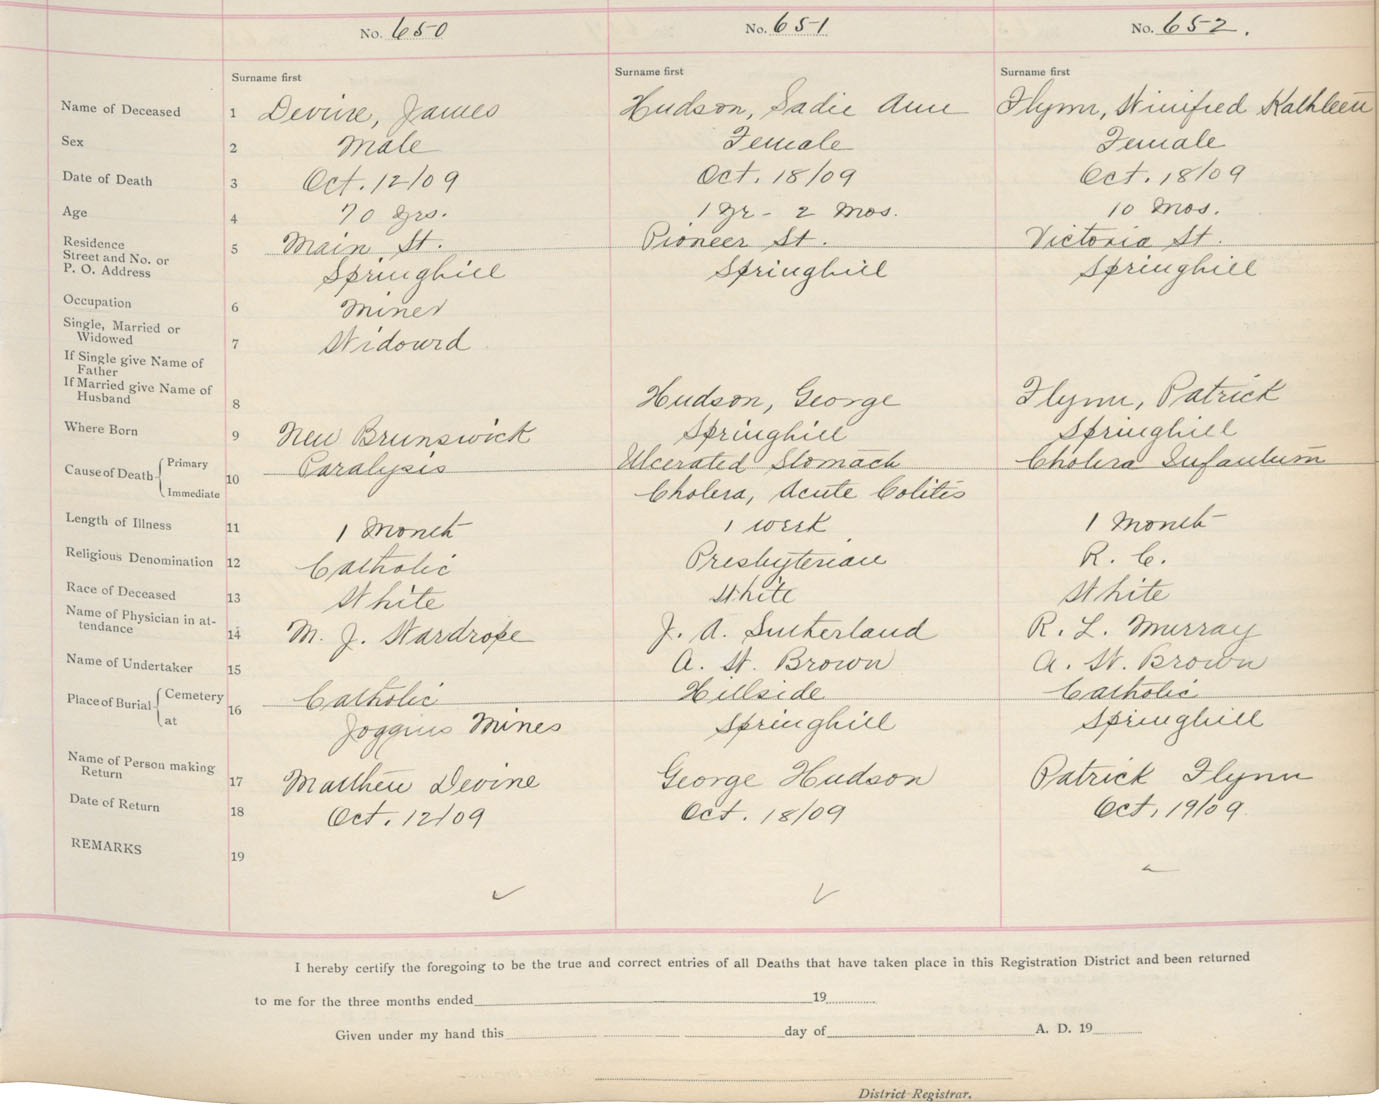 No. 650 No. 651 No. 652.
Surname first Surname first Surname first
Name of Deceased 1 Devine, James Hudson, Sadie Ann Flynn, Winifred Kathleen
Sex 2 Male Female Female
Date of Death 3 Oct. 12/09 Oct. 18/09 Oct. 18/09
Age 4 70 yrs. 1 yr - 2 mos. 10 mos.
Residence
Street and No. or 5 Main St. Pioneer St. Victoria St.
P. O. Address Springhill Springhill Springhill
Occupation 6 Miner
Single, Married or
Widowed 7 Widowd
If Single give Name of
Father
If Married give Name of
Husband 8 Hudson, George Flynn, Patrick
Where Born 9 New Brunswick Springhill Springhill
Cause of Death Primary 10 Paralysis Ulcerated Stomach Cholera Infantum
Immediate Cholera, Acute Colitis
Length of Illness 11 1 Month 1 week 1 Month
Religious Denomination 12 Catholic Presbyterian R. C.
Race of Deceased 13 White White White
Name of Physician in at-
tendance 14 M. J. Wardrope J. A. Sutherland R. L. Murray
Name of Undertaker 15 A. W. Brown A. W. Brown
Place of Burial Cemetery 16 Catholic Hillside Catholic
at Joggins Mines Springhill Springhill
Name of Person making
Return 17 Matthew Devine George Hudson Patrick Flynn
Date of Return 18 Oct. 12/09 Oct. 18/09 Oct. 19/09
REMARKS 19
I hereby certify the foregoing to be the true and correct entries of all Deaths that have taken place in this Registration District and been returned
to me for the three months ended 19
Given under my hand this day of A. D. 19
District Registrar.